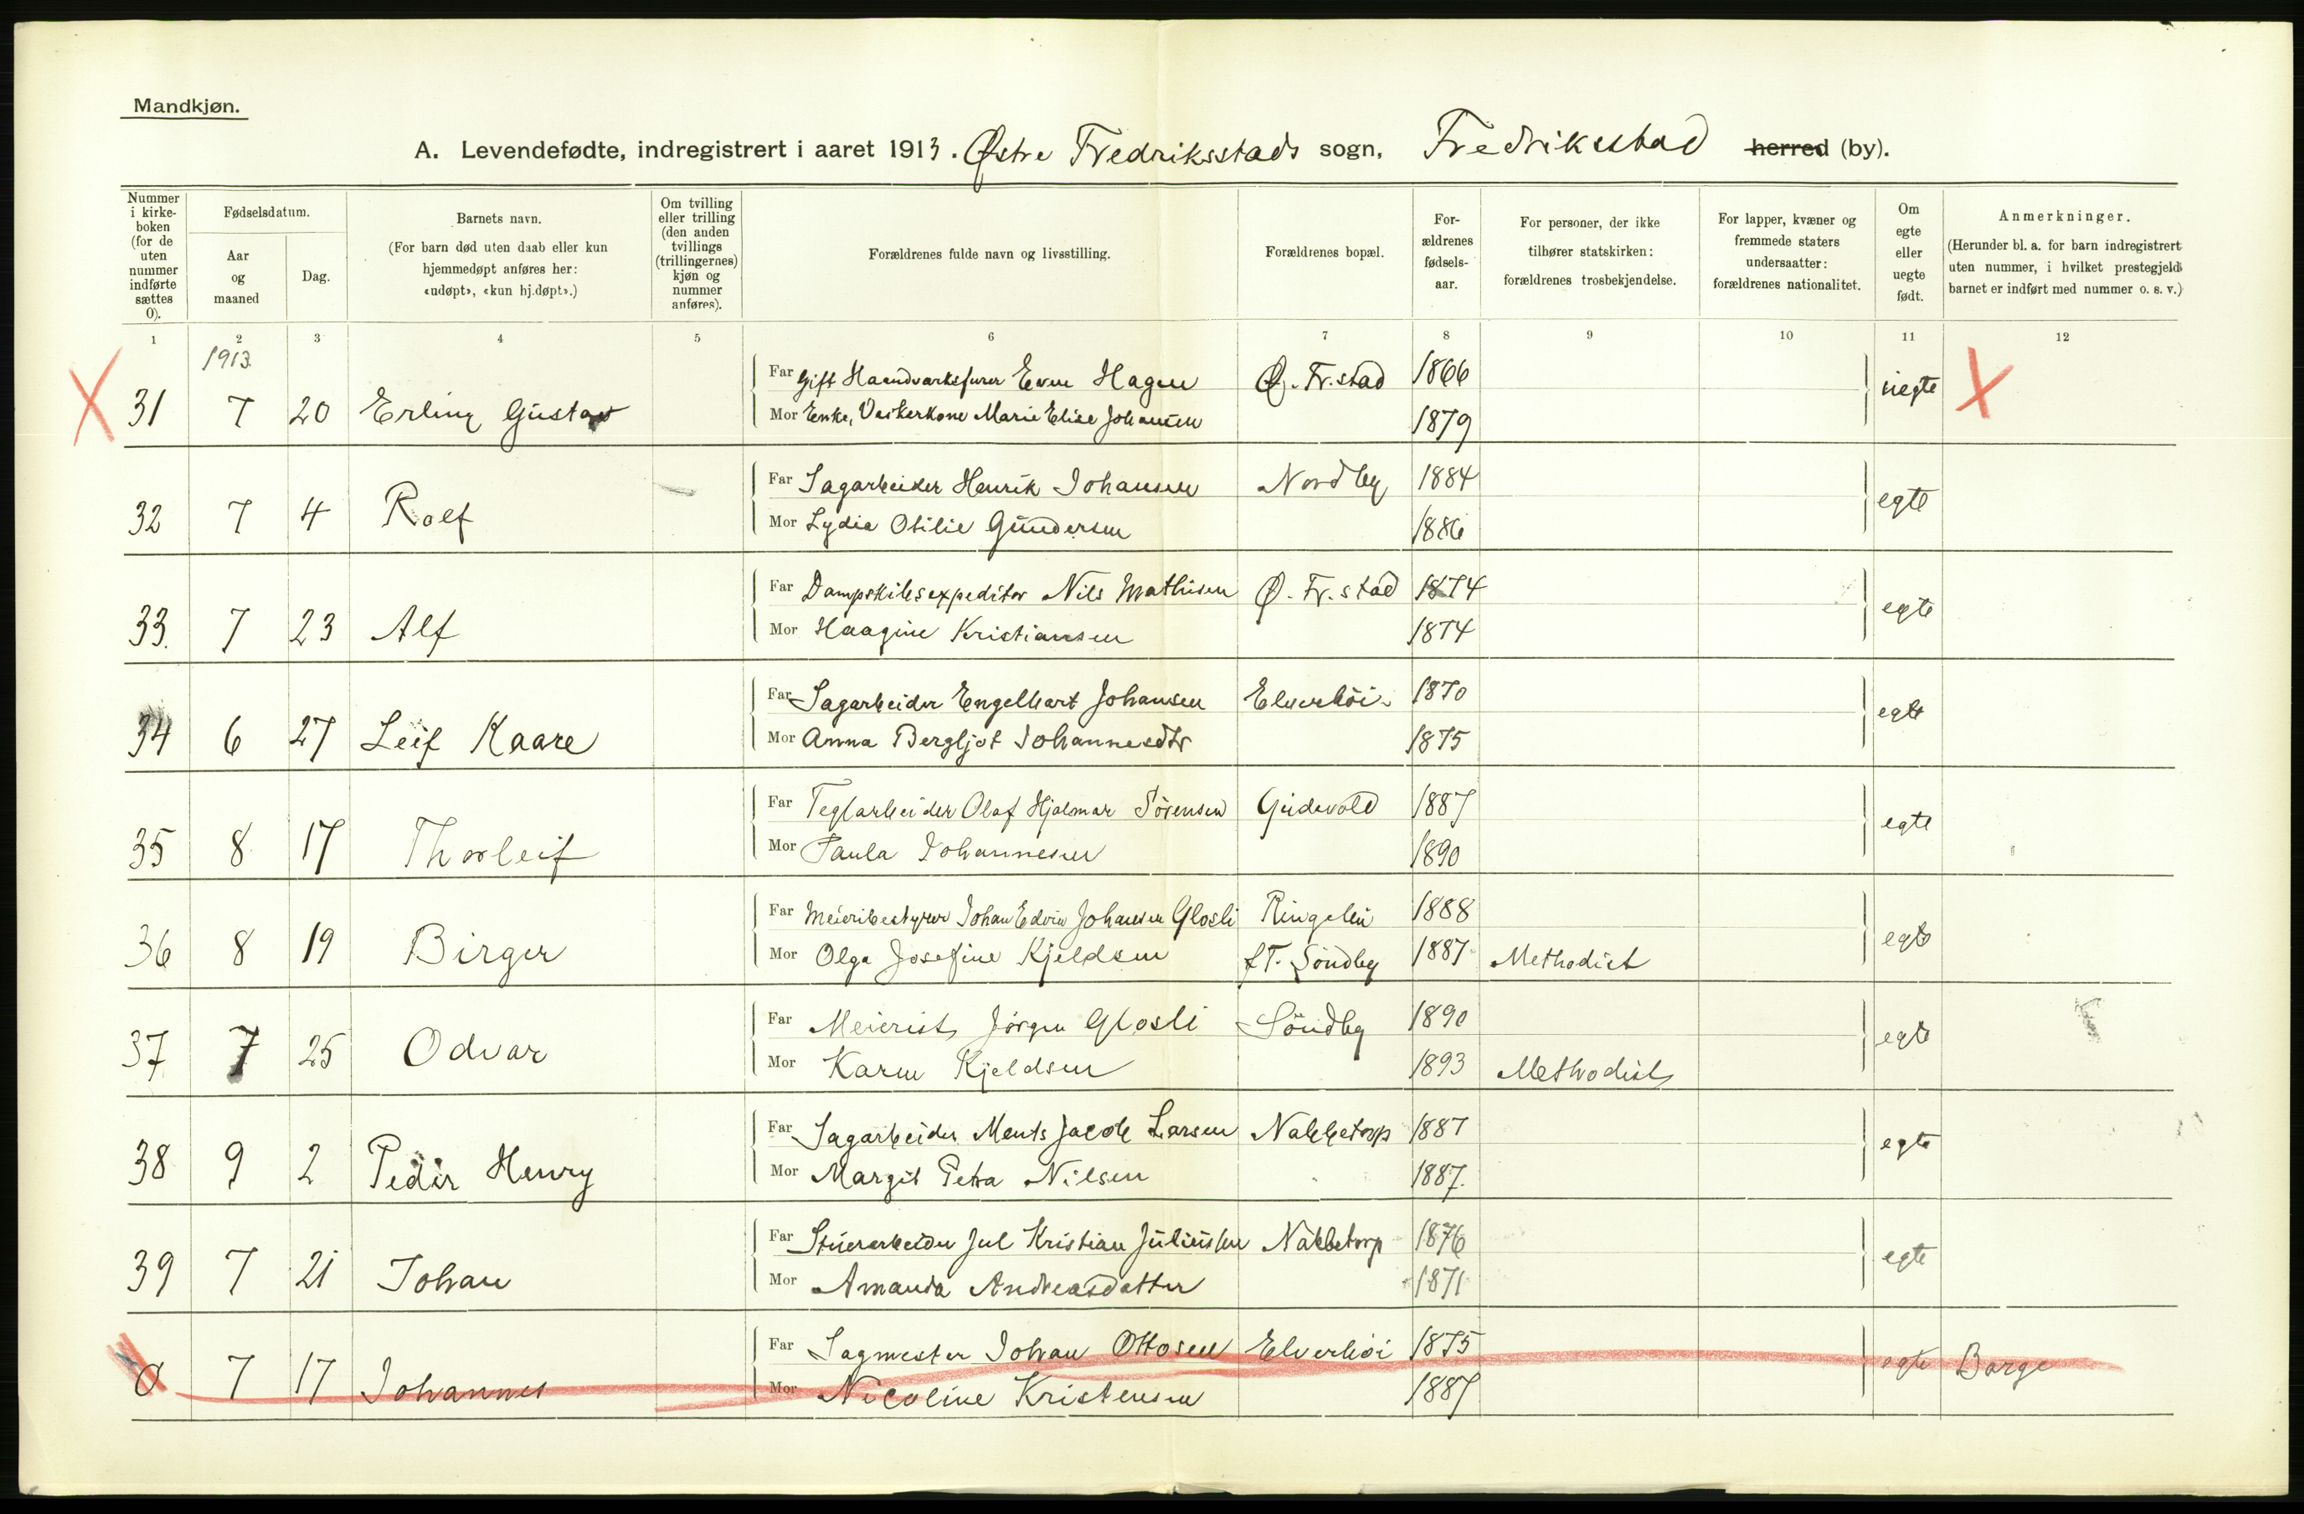 Mandkjøn.
A. Levendefødte, indregistrert i aaret 1913. Østre Fredriksstads sogn, Fredriksstad herred (by).
Nummer i kirke-boken (for de uten nummer indførte sættes 0).
Fødselsdatum.
Aar og maaned
Dag.
Barnets navn.
(For barn død uten daab eller kun hjemmedøpt anføres her: «udøpt», «kun hj.døpt».)
Om tvilling eller trilling (den anden tvillings (trillingernes) kjøn og nummer anføres).
Forældrenes fulde navn og livsstilling.
Forældrenes bopæl.
For-ældrenes fødsels-aar.
For personer, der ikke tilhører statskirken: forældrenes trosbekjendelse.
For lapper, kvæner og fremmede staters undersaatter: forældrenes nationalitet.
Om egte eller uegte født.
Anmerkninger.
(Herunder bl. a. for barn indregistrert uten nummer, i hvilket prestegjeld barnet er indført med nummer o. s. v.)
1 2 3 4 5 6 7 8 9 10 11 12
1913
31 7 20 Erling Gustav Far Gift Haandverksfurer Even Hagen Ø. Fr.stad 1866 uegte
Mor Enke, Vaskerkone Marie Elise Johansen 1879
32 7 4 Rolf Far Sagarbeider Henrik Johansen Nordby 1884 egte
Mor Lydia Otilie Gundersen 1886
33. 7 23 Alf Far Dampskibsexpeditør Nils Mathisen Ø. Fr.stad 1874 egte
Mor Haagine Kristiansen 1874
34 6 27 Leif Kaare Far Sagarbeider Engelhart Johansen Elverhöi 1870 egte
Mor Anna Bergljot Johannesdtr 1875
35 8 17 Thorleif Far Teglarbeider Olaf Hjalmar Sörensen Gudevold 1887 egte
Mor Paula Johannesen 1890
36 8 19 Birger Far Meieribestyrer Johan Edvin Johansen Glosli Ringelin 1888 egte
Mor Olga Josefine Kjeldsen f.T. Söndby 1887 Methodist
37 7 25 Odvar Far Meierist Jörgen Glosli Söndby 1890 egte
Mor Karen Kjeldsen 1893 Methodist
38 9 2 Peder Henry Far Sagarbeider Ments Jacob Larsen Nabbetorp 1887 egte
Mor Margit Petra Nilsen 1887.
39 7 21 Johan Far Stuerarbeider Jul Kristian Juliussen Nabbetorp 1876 egte
Mor Amanda Andreasdatter 1871
0 7 17 Johannes Far Sagmester Johan Ottosen Elverhöi 1875 egte Borge
Mor Nicoline Kristensen 1887